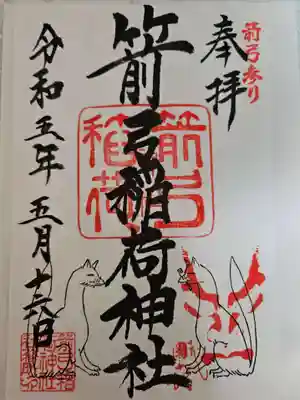 箭弓参り
奉拝
箭弓稲荷神社
箭弓
稲荷
令和五年 五月十六日